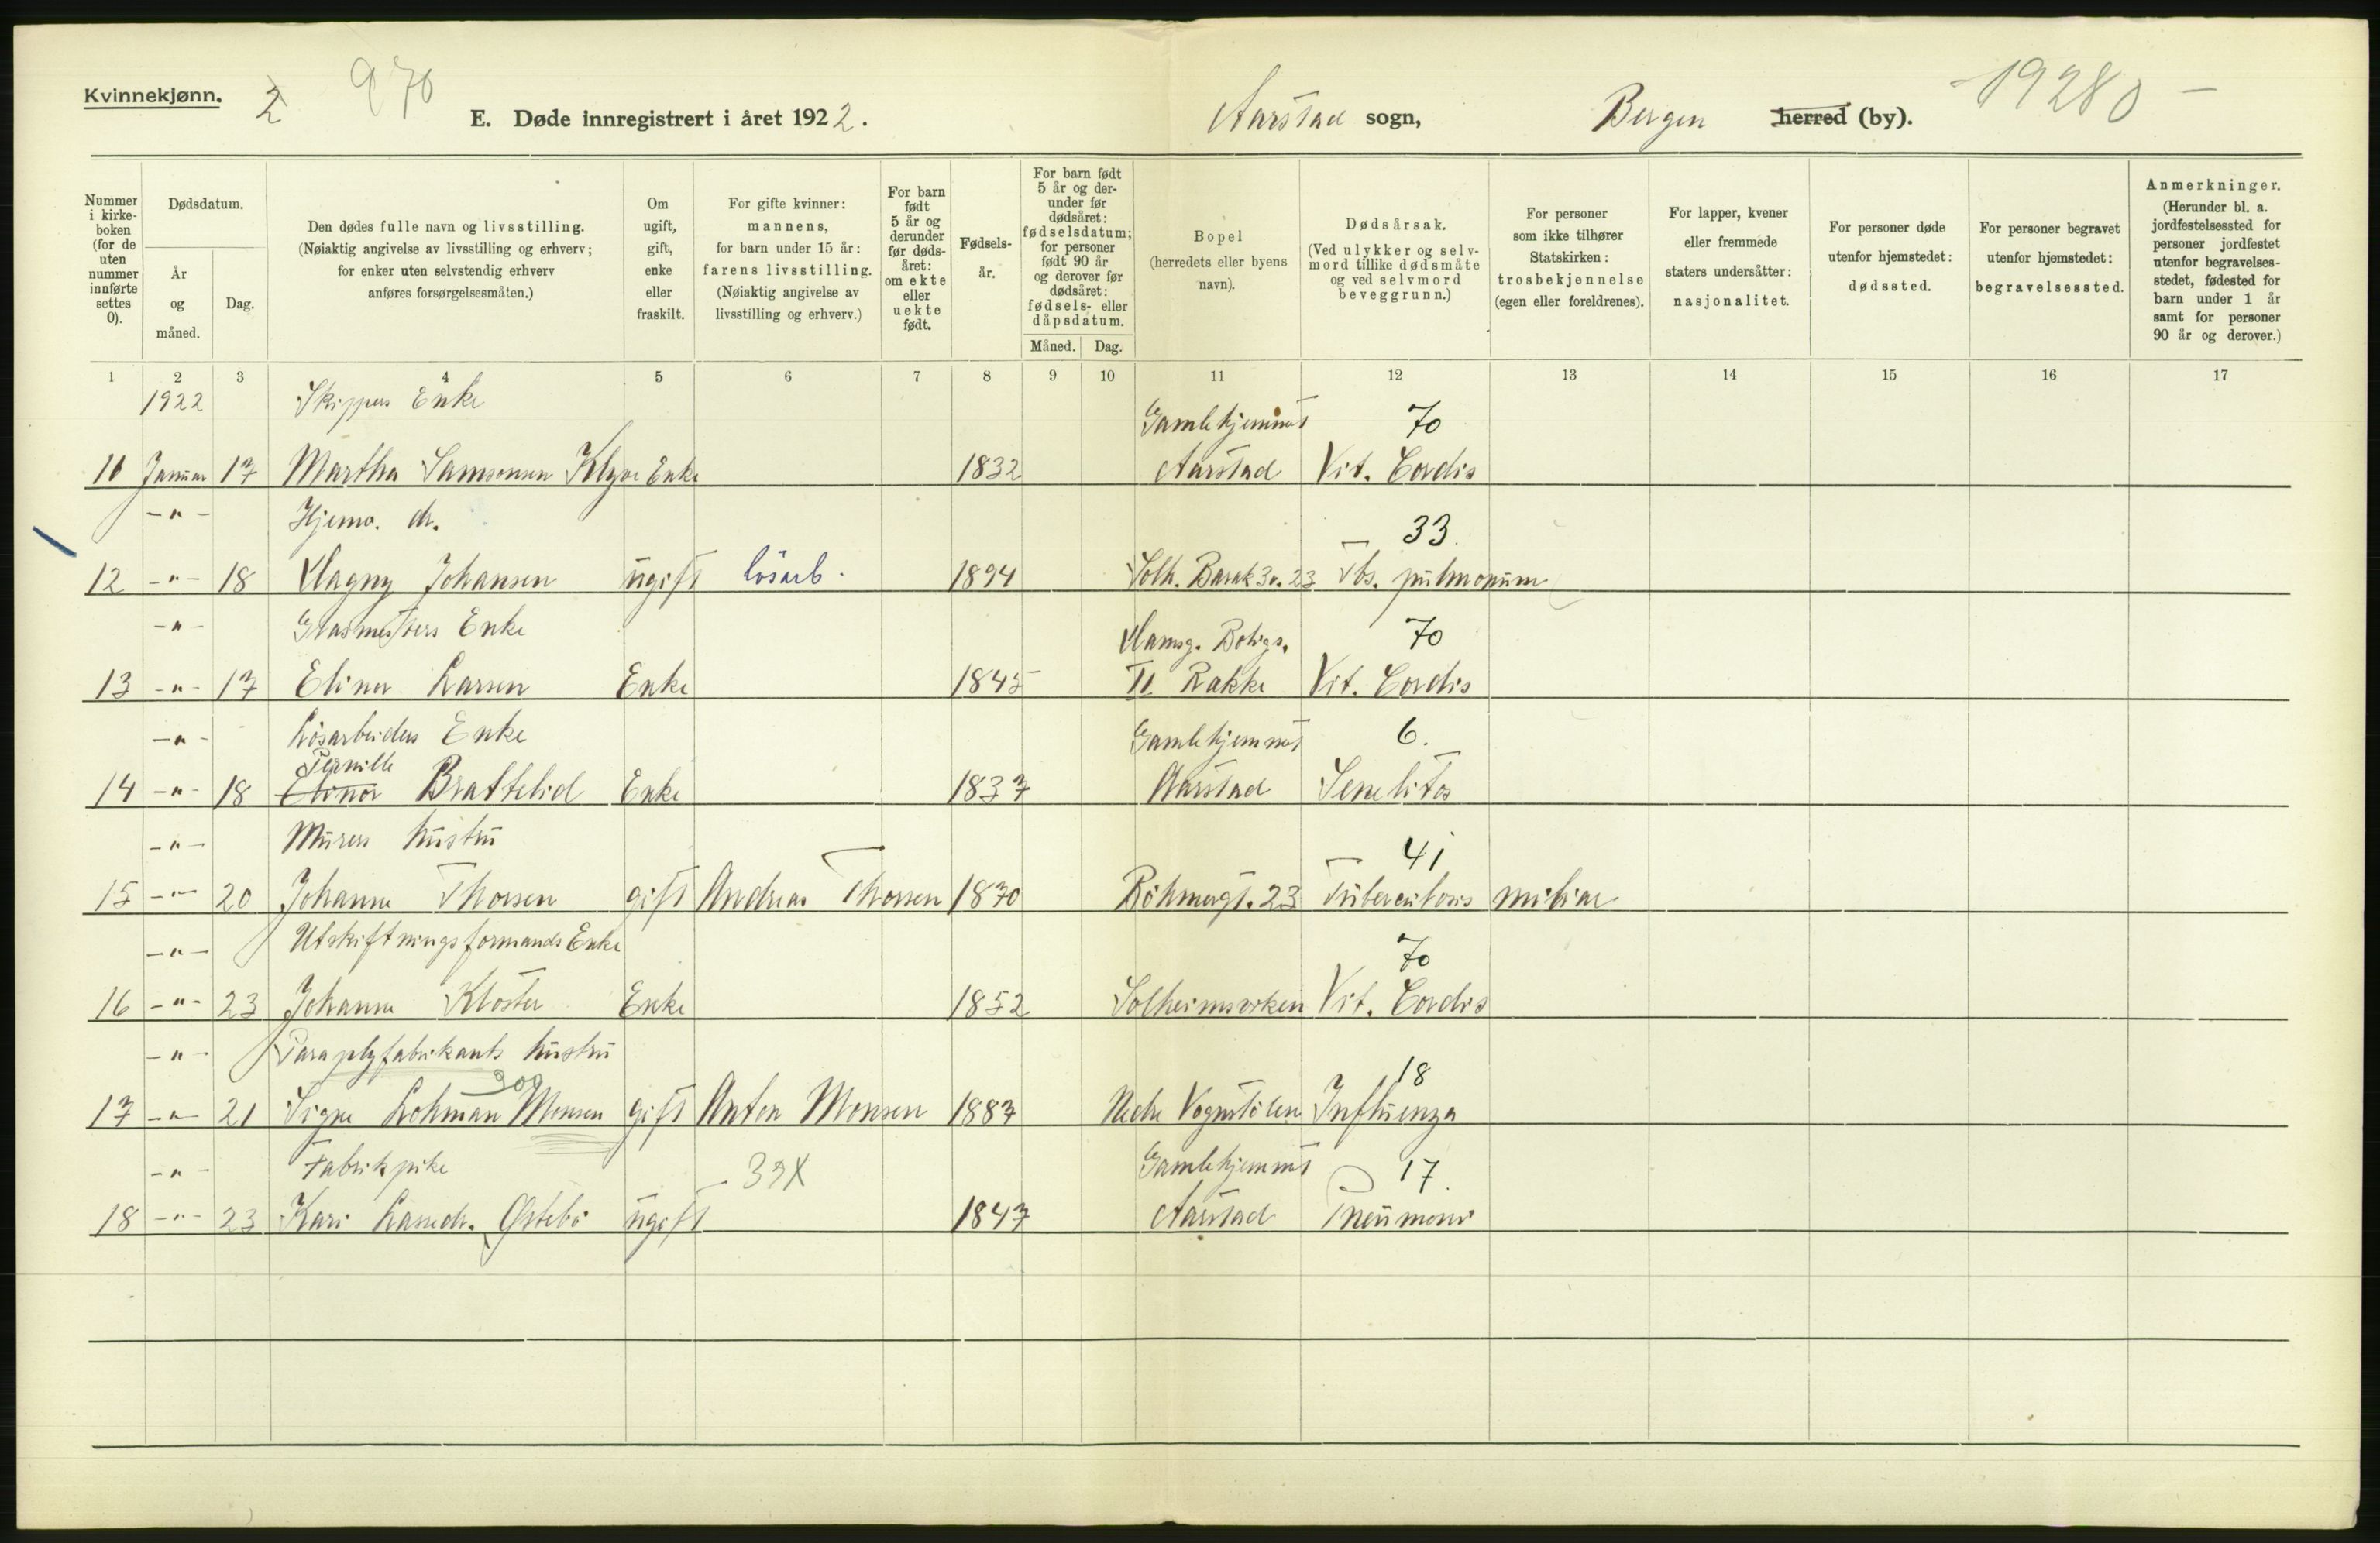 Kvinnekjønn.
2
970
E. Døde innregistrert i året 1922.
Aarstad sogn,
Bergen herred (by).
19280 -
Nummer i kirkeboken (for de uten nummer innførte settes 0).
Dødsdatum.
År og måned.
Dag.
Den dødes fulle navn og livsstilling. (Nøiaktig angivelse av livsstilling og erhverv; for enker uten selvstendig erhverv anføres forsørgelsesmåten.)
Om ugift, gift, enke eller fraskilt.
For gifte kvinner: mannens, for barn under 15 år: farens livsstilling. (Nøiaktig angivelse av livsstilling og erhverv.)
For barn født 5 år og derunder før dødsåret: om ekte eller uekte født.
Fødselsår.
For barn født 5 år og derunder før dødsåret: fødselsdatum; for personer født 90 år og derover før dødsåret: fødsels- eller dåpsdatum.
Måned. Dag.
Bopel (herredets eller byens navn).
Dødsårsak. (Ved ulykker og selvmord tillike dødsmåte og ved selvmord beveggrunn.)
For personer som ikke tilhører Statskirken: trosbekjennelse (egen eller foreldrenes).
For lapper, kvener eller fremmede staters undersåtter: nasjonalitet.
For personer døde utenfor hjemstedet: dødssted.
For personer begravet utenfor hjemstedet: begravelsessted.
Anmerkninger. (Herunder bl. a. jordfestelsessted for personer jordfestet utenfor begravelsesstedet, fødested for barn under 1 år samt for personer 90 år og derover.)
1 2 3 4 5 6 7 8 9 10 11 12 13 14 15 16 17
1922 Skippers Enke Gamlehjemmet 70
Januar 17 Martha Samsonsen Enke 1832 Aarstad Vit. Cordis
-"- Hjemv. dr. 33
12 -"- 18 Magny Johansen ugift Løsarb. 1894 Solh. Barak 3 v. 23 Tbs. pulmonum
-"- Glasmesters Enke 70
13 -"- 17 Elina Larsen Enke 1845 Vit. Cordis
-"- Løsarbeiders Enke Gamlehjemmet 6.
Pernille
14 -"- 18 Brattelid Enke 1837 Aarstad Senelitas
-"- Murers hustru 41
15 -"- 20 Johanne Thorsen gift Andreas Thorsen 1870 Böhmergt. 23 Tuberculosis miliar
-"- Utskiftningsformands Enke 70
16 -"- 23 Johanne Kloster Enke 1852 Solheimsviken Vit. Cordis
-"- Paraplyfabrikants hustru 18
900
17 -"- 21 Signe Lohman Monsen gift Anton Monsen 1887 Nedre Vognstølen Influenza
-"- Fabrikpike 39X Gamlehjemmet 17.
18 -"- 23 Kari Larsdr. Østebø ugift 1847 Aarstad Pneumoni